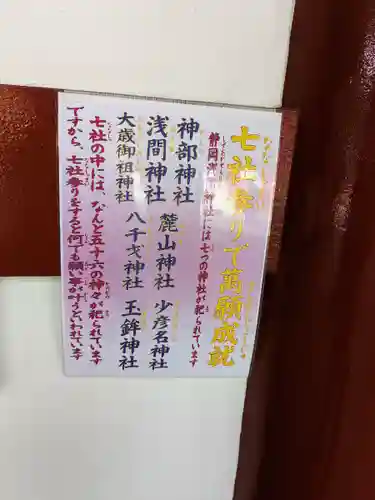 七社参りで萬願成就
静岡浅間神社には七つの神社が祀られています
神部神社
浅間神社
大歳御祖神社
麓山神社
八千戈神社
少彦名神社
玉鉾神社
七社の中には、なんと五十六の神々が祀られています
ですから、七社参りをすると何でも願い事が叶うといわれています